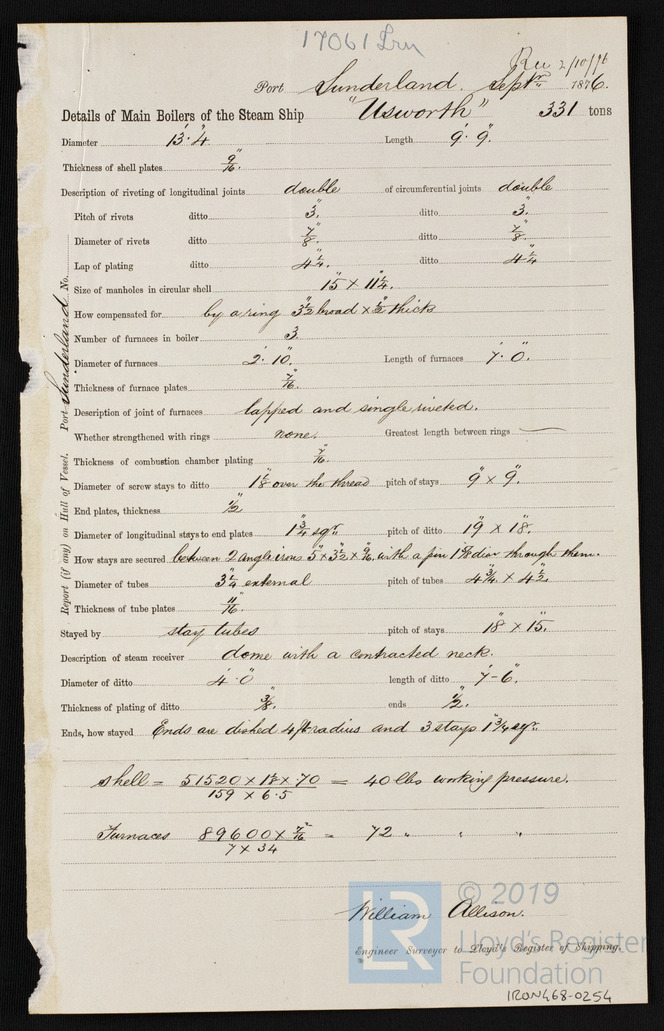 17061 Irn
Port Sunderland. Septr 1876. 2/10/76
Details of Main Boilers of the Steam Ship "Usworth" 331 tons
Diameter 13'. 4" Length 9'. 9".
Thickness of shell plates 9/16".
Description of riveting of longitudinal joints double of circumferential joints double
Pitch of rivets ditto 3". ditto 3".
Diameter of rivets ditto 7/8". ditto 7/8".
Lap of plating ditto 4 1/4". ditto 4 1/4"
Size of manholes in circular shell 15" x 11 1/4".
How compensated for by a ring 3 1/2" broad x 1/2" thick
Number of furnaces in boiler 3
Diameter of furnaces 2'. 10". Length of furnaces 7'. 0".
Thickness of furnace plates 7/16".
Description of joint of furnaces lapped and single riveted.
Whether strengthened with rings none. Greatest length between rings —
Thickness of combustion chamber plating 7/16".
Diameter of screw stays to ditto 1 1/8" over the thread pitch of stays 9" x 9".
End plates, thickness 1/2"
Diameter of longitudinal stays to end plates 1 3/4" sqr. pitch of ditto 19" x 18".
How stays are secured between 2 angle irons 5" x 3 1/2" x 9/16", with a pin dia through them.
Diameter of tubes 3 1/4" external pitch of tubes 4 3/4" x 4 1/2".
Thickness of tube plates 11/16".
Stayed by stay tubes pitch of stays 18" x 15".
Description of steam receiver dome with a contracted neck.
Diameter of ditto 4'. 0" length of ditto 7'-6".
Thickness of plating of ditto 3/8". ends 1/2".
Ends, how stayed Ends are dished 4 ft radius and 3 stays 1 3/4" sqr.
Shell = 51520 x 1 1/8 x .70 = 40 lbs working pressure.
159 x 6.5
Furnaces 89600 x 7/16" = 72 " " "
7 x 34
William Allison.
Engineer Surveyor to Lloyd's Register of Shipping.
Report (if any) on Hull of Vessel. Port Sunderland No.
LR
© 2019
Lloyd's Register
Foundation
IRON468-0254